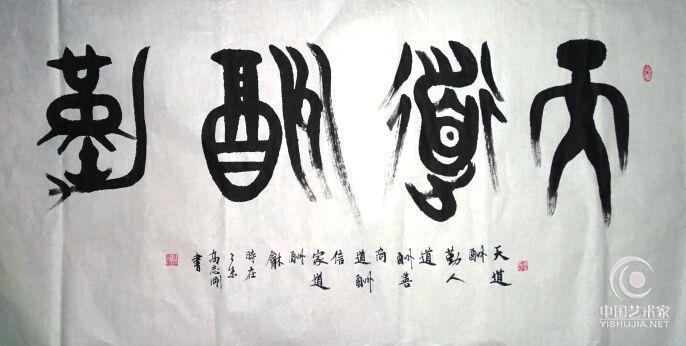 天道酬勤
天道
酬
勤人
道
酬善
商
道酬
信
家道
酬
龢
時在
乙未
高志刚
書
中国艺术家
YISHUJIA.NET